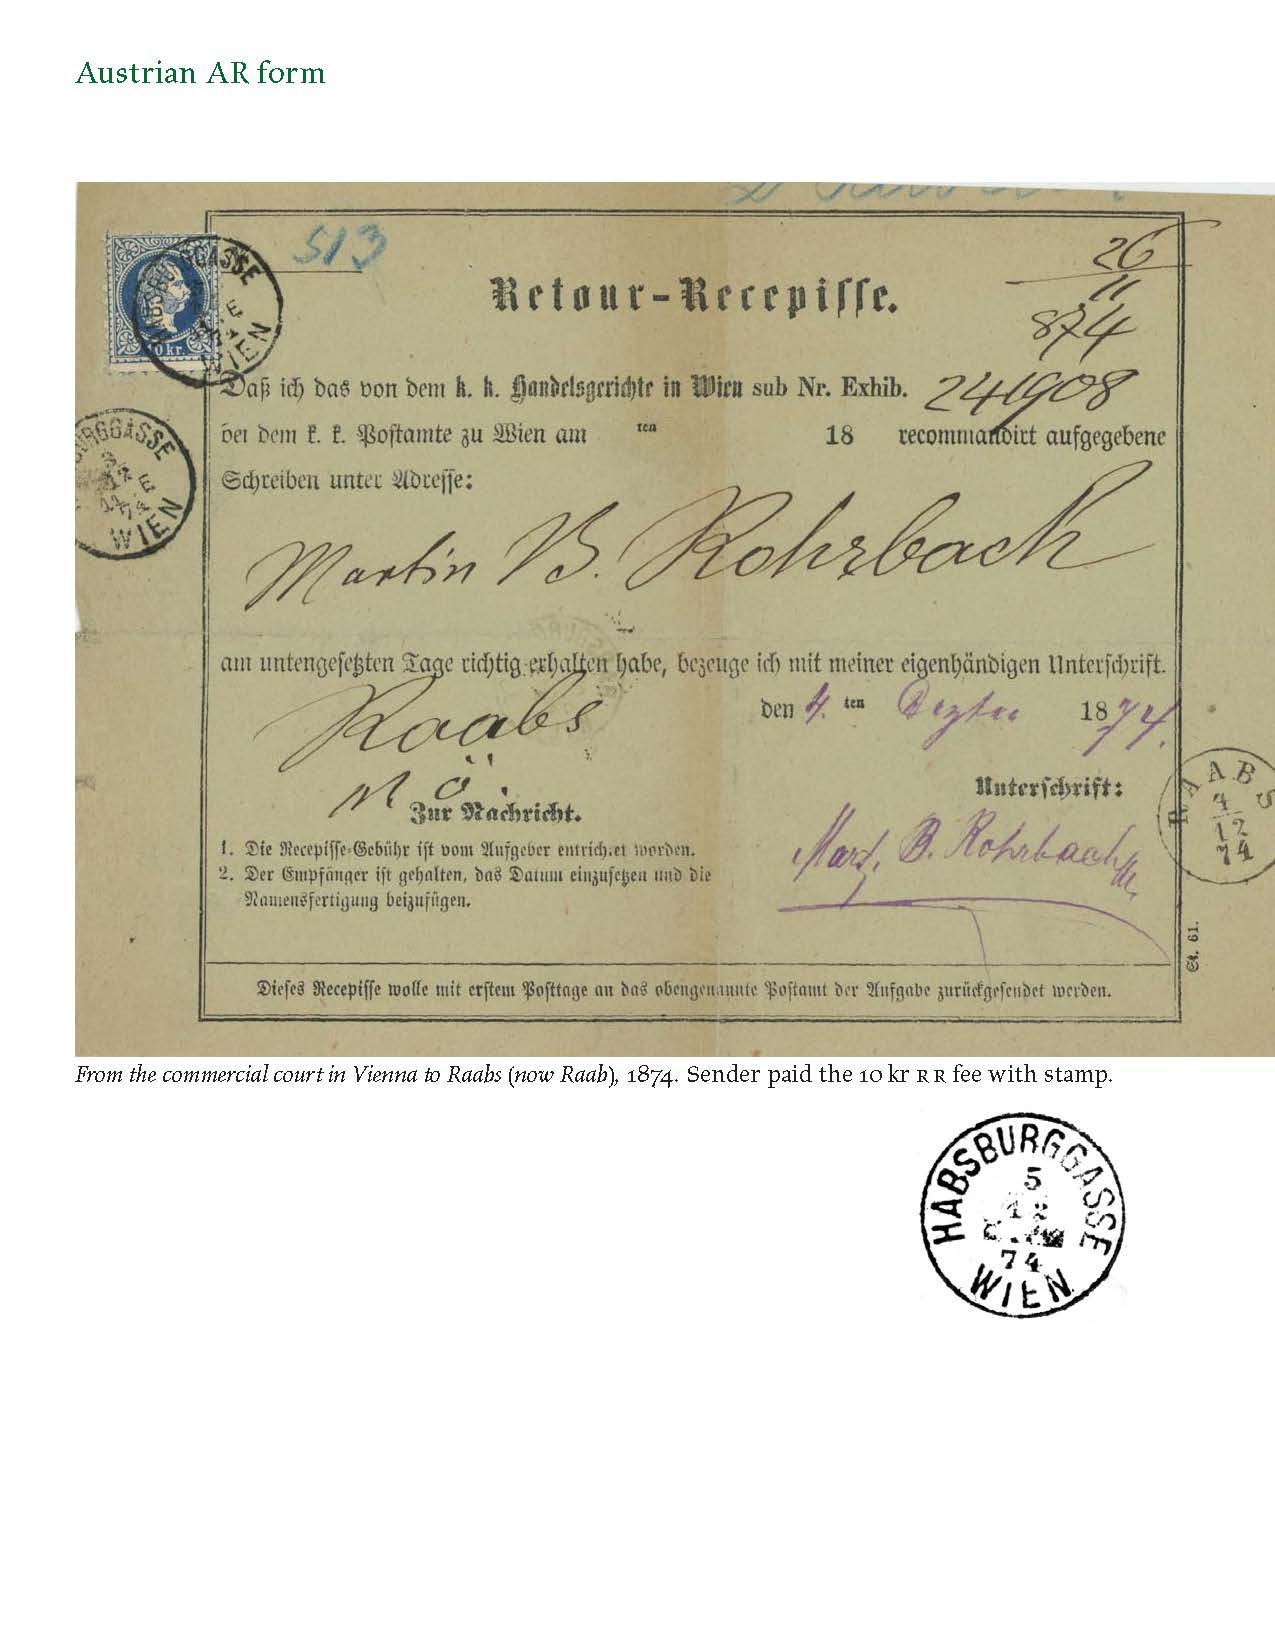 Austrian AR form
513
26
11
874
HABSBURGGASSE
WIEN
10 kr.
Retour-Recepisse.
Daß ich das von dem k. k. Handelsgerichte in Wien sub Nr. Exhib. 241908
bei dem k. k. Postamte zu Wien am ten 18 recommandirt aufgegebene
BURGGASSE
3
12
E
74
WIEN
Schreiben unter Adresse:
Martin B. Rohrbach
am untengesetzten Tage richtig erhalten habe, bezeuge ich mit meiner eigenhändigen Unterschrift.
Raabs
den 4. ten Dezber 1874.
N Ö.
Unterschrift:
RAABS
4
12
74
Zur Nachricht.
Mart. B. Rohrbach
1. Die Recepisse-Gebühr ist vom Aufgeber entrichtet worden.
2. Der Empfänger ist gehalten, das Datum einzusetzen und die
Namensfertigung beizufügen.
St. 61.
Dieses Recepisse wolle mit erstem Posttage an das obengenannte Postamt der Aufgabe zurückgesendet werden.
From the commercial court in Vienna to Raabs (now Raab), 1874. Sender paid the 10 kr RR fee with stamp.
HABSBURGGASSE
5
12
74
WIEN